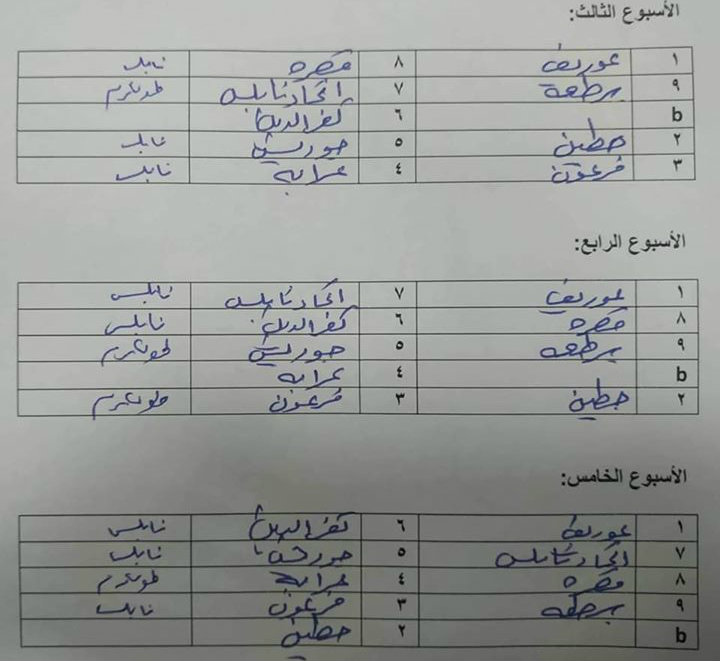 الأسبوع الثالث:
١ عوريف ٨ قصره نابلس
٩ برطعة ٧ اتحاد نابلس طولكرم
b ٦ كفر الديك
٢ حطين ٥ جوريش نابلس
٣ فرعون ٤ عرابه نابلس
الأسبوع الرابع:
١ عوريف ٧ اتحاد نابلس نابلس
٨ قصره ٦ كفر الديك نابلس
٩ برطعه ٥ جوريش طولكرم
b ٤ عرابه
٢ حطين ٣ فرعون طولكرم
الأسبوع الخامس:
١ عوريف ٦ كفر الديك نابلس
٧ اتحاد نابلس ٥ جوريش نابلس
٨ قصره ٤ عرابه طولكرم
٩ برطعه ٣ فرعون نابلس
b ٢ حطين